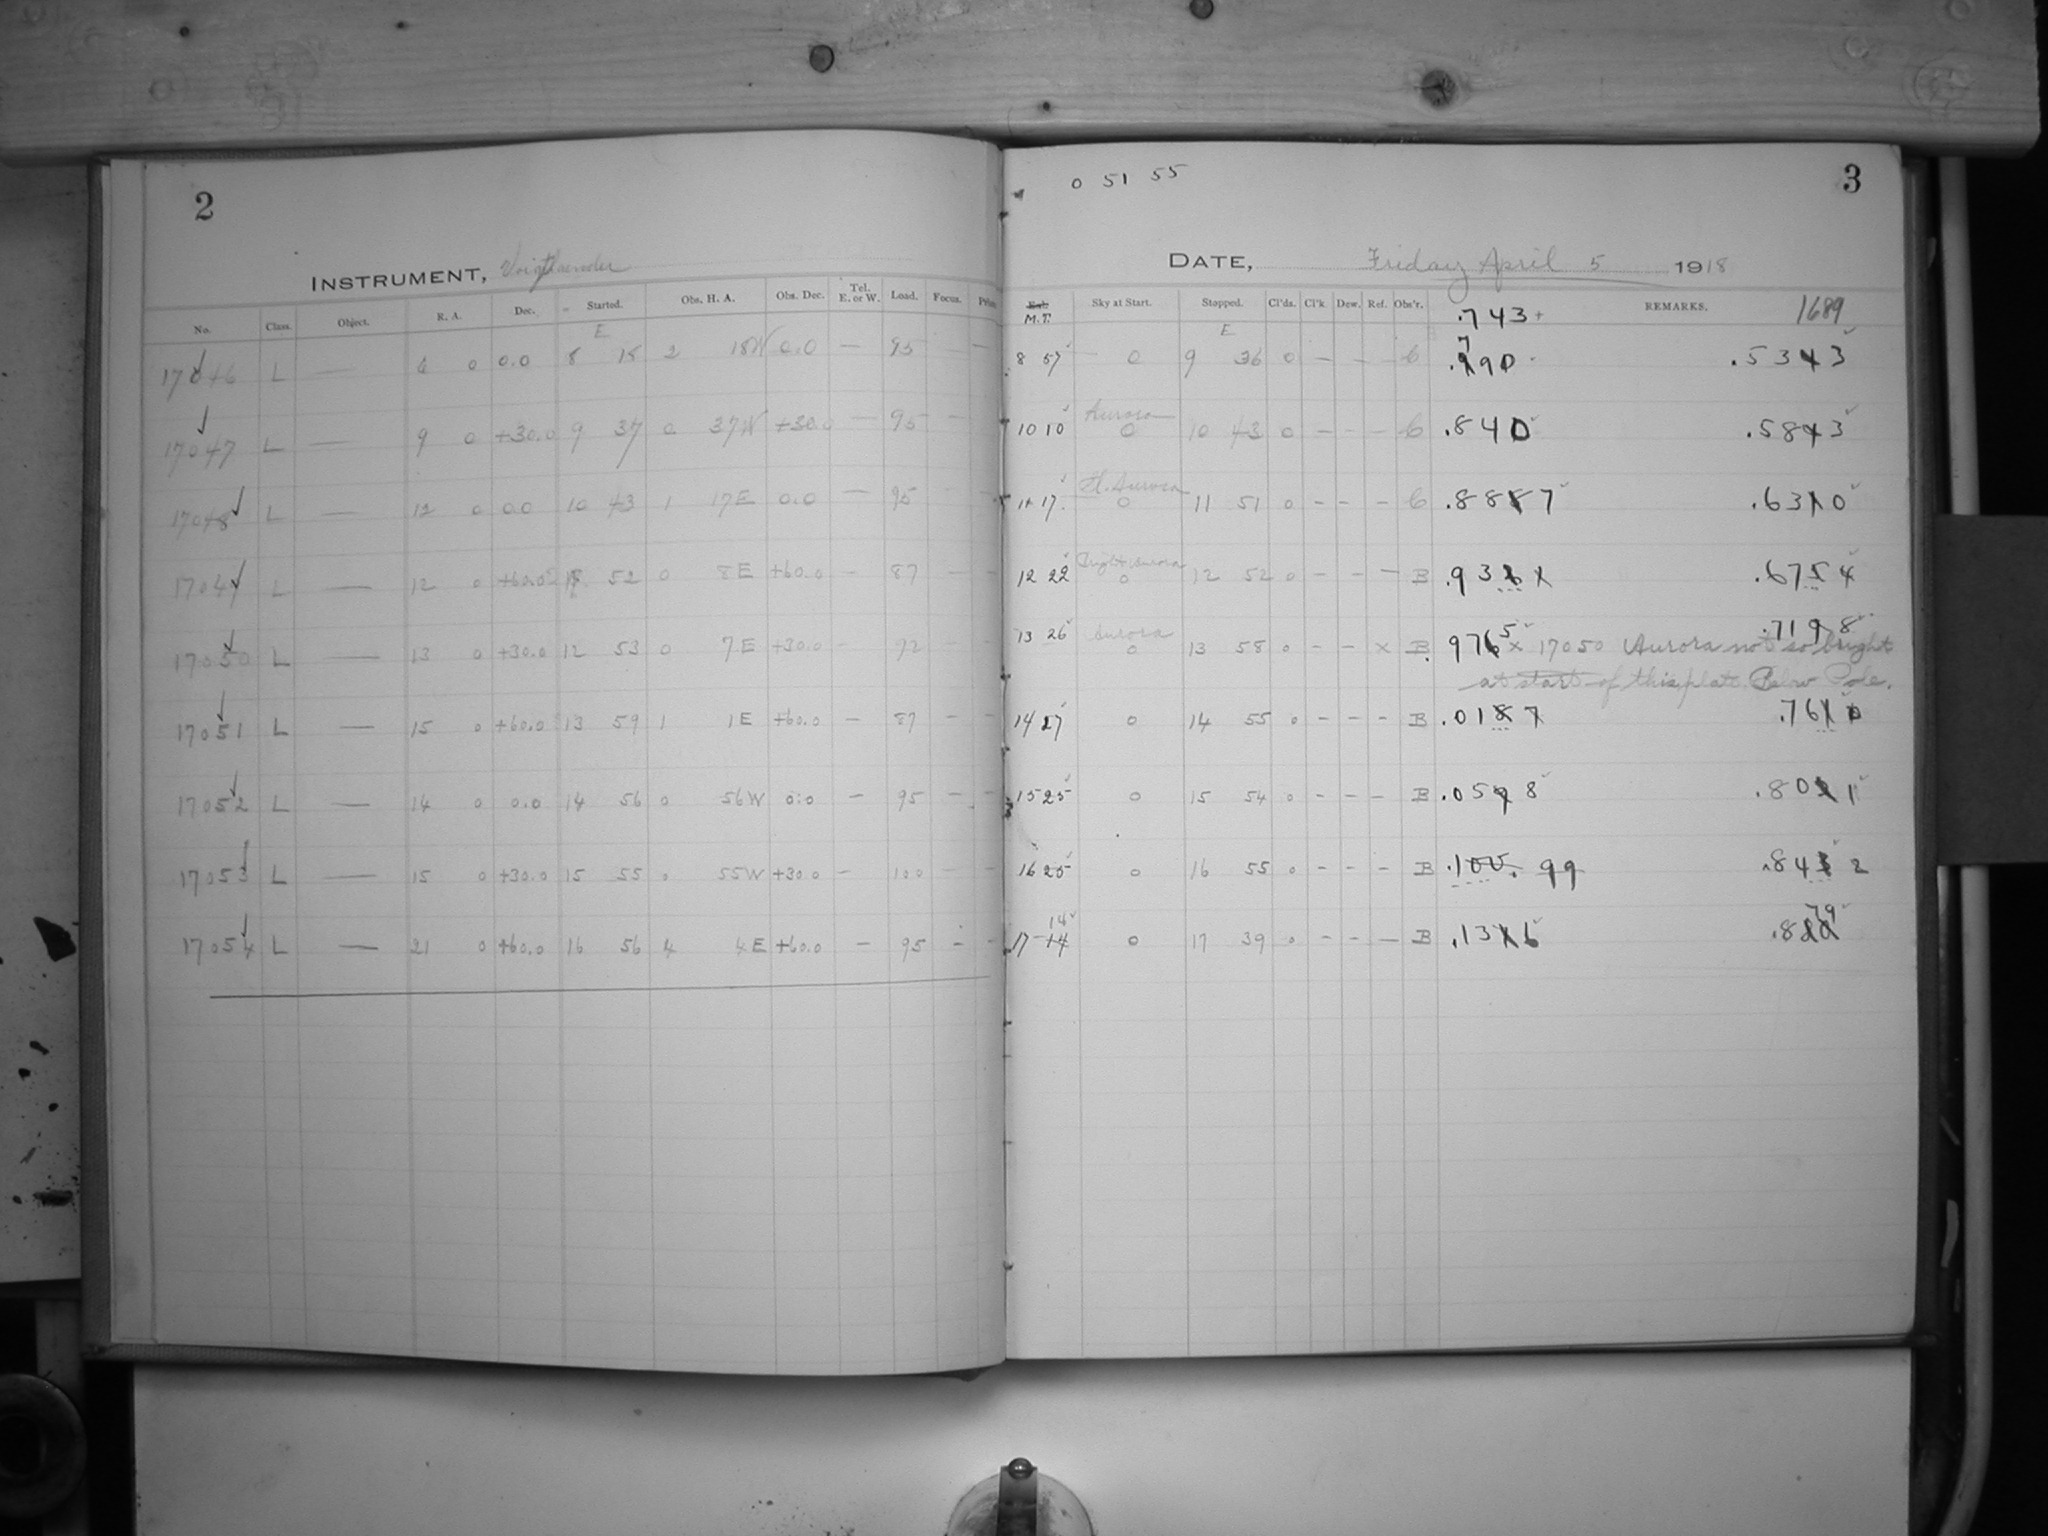 2
INSTRUMENT, Voigtlaender
No. Class. Object. R. A. Dec. Started. Obs. H. A. Obs. Dec. Tel. E. or W. Load. Focus.
E
17046 L — 6 0 0.0 8 15 2 18W 0.0 — 95 — —
17047 L — 9 0 +30.0 9 37 0 37W +30.0 — 95 —
17048 L — 12 0 0.0 10 43 1 17E 0.0 — 95 —
17049 L — 12 0 +60.0 52 0 8E +60.0 — 87 —
17050 L — 13 0 +30.0 12 53 0 7E +30.0 — 92 —
17051 L — 15 0 +60.0 13 59 1 1E +60.0 — 87 — —
17052 L — 14 0 0.0 14 56 0 56W 0.0 — 95 — —
17053 L — 15 0 +30.0 15 55 0 55W +30.0 — 100 — —
17054 L — 21 0 +60.0 16 56 4 4E +60.0 — 95 — —
0 51 55
3
DATE, Friday April 5 1918
M.T. Sky at Start. Stopped. Cl'ds. Cl'k. Dew. Ref. Obs'r. REMARKS. 1689
.743+
E
8 57 0 9 36 0 — — — C .790 .5343
10 10 Aurora 0 10 43 0 — — — C .840 .5843
11 17 Fl. Aurora 0 11 51 0 — — — C .8887 .6310
12 22 Bright Aurora 0 12 52 0 — — — B .93 .6754
13 26 Aurora 0 13 58 0 — — x B 976 5 x 17050 Aurora not so bright .7198
at start of this plate. Below Pole.
14 27 0 14 55 0 — — — B .0187 .761 0
15 25 0 15 54 0 — — — B .059 8 .802 1
16 25 0 16 55 0 — — — B .100. 99 .843 2
17 14 14 0 17 39 0 — — — B .13 6 .8 79